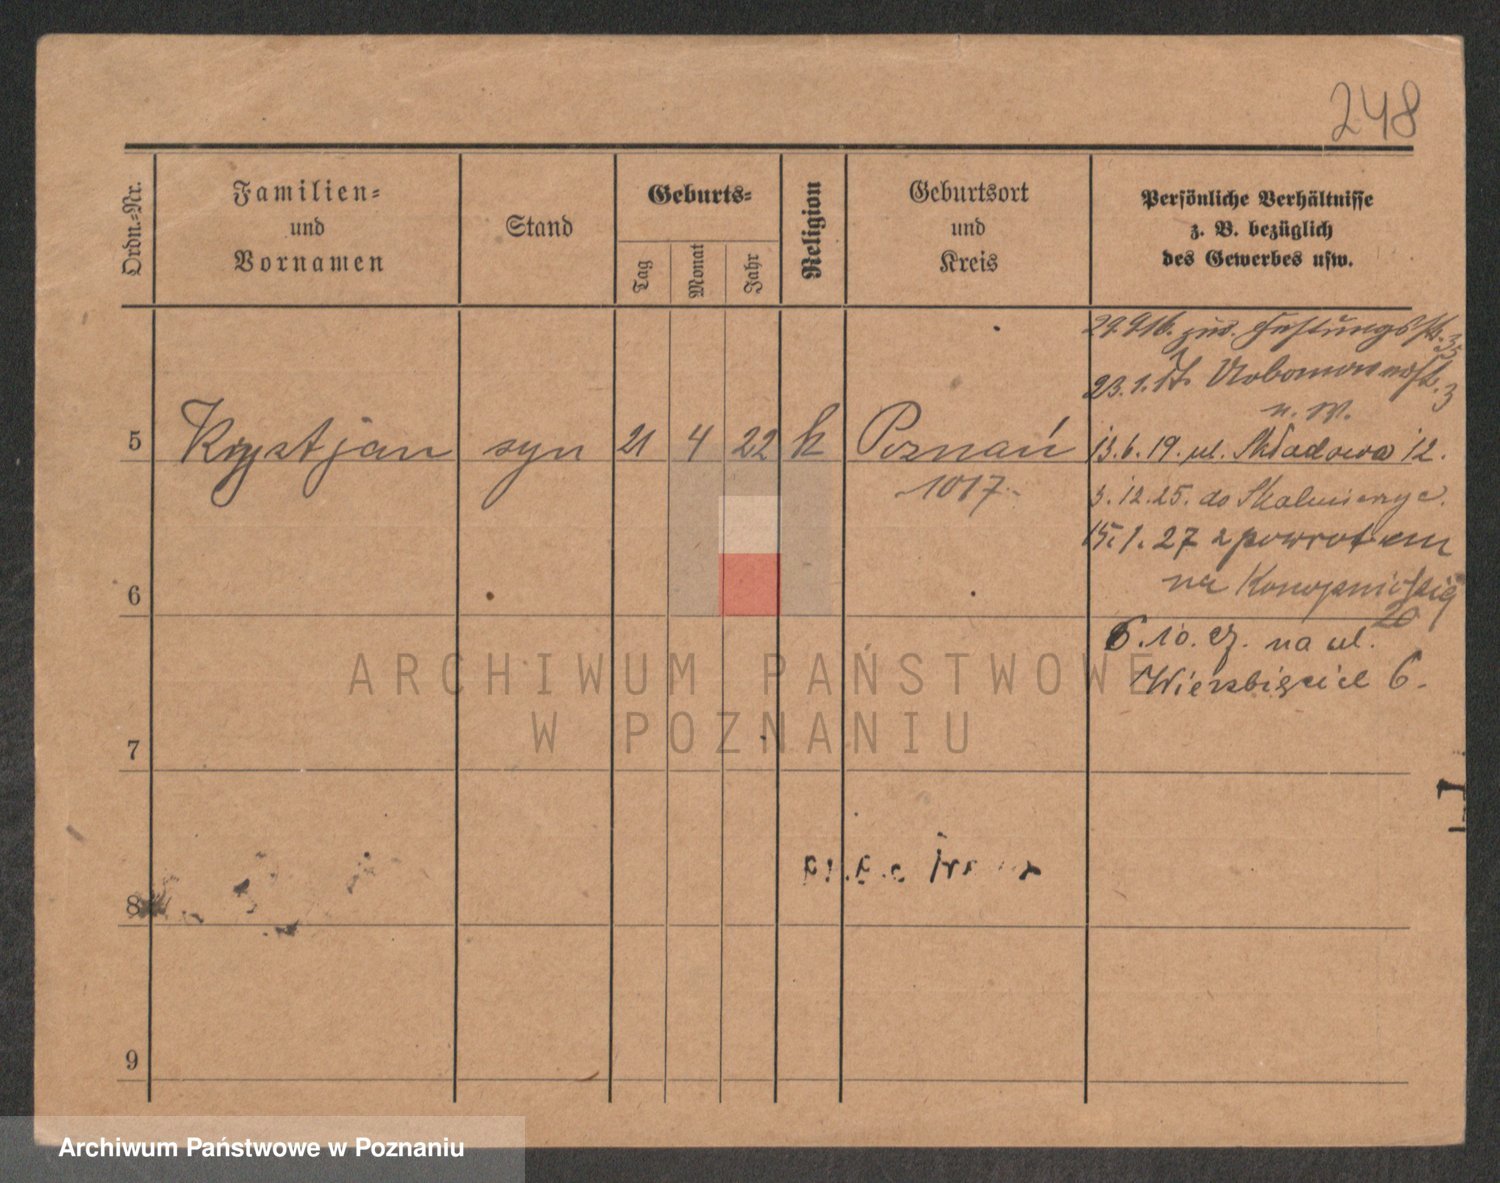 248
Ordn.-Nr.
Familien-
und
Vornamen
Stand
Geburts-
Tag
Monat
Jahr
Religion
Geburtsort
und
Kreis
Persönliche Verhältnisse
z. B. bezüglich
des Gewerbes usw.
5 Krystjan syn 21 4 22 k Poznań
1017.
29.9.16. zur. Festungsstr. 35
23.1.17. 3
n. W.
13.6.19. ul. Składowa 12.
3.12.25. do Skalmierzyc.
15.1.27 z powrotem
na
20
6.10.27. na ul.
Wierzbięcice 6.
6
7
8
9
ARCHIWUM PAŃSTWOWE
W POZNANIU
Archiwum Państwowe w Poznaniu